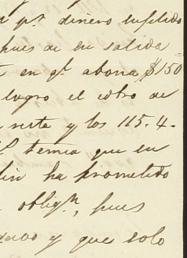 pr. dinero suplido
pues de su salida
en qe. abona $150
logro el cobro de
neta y los 115.4.
temia que en
ha prometido
oblign., pues
y que solo